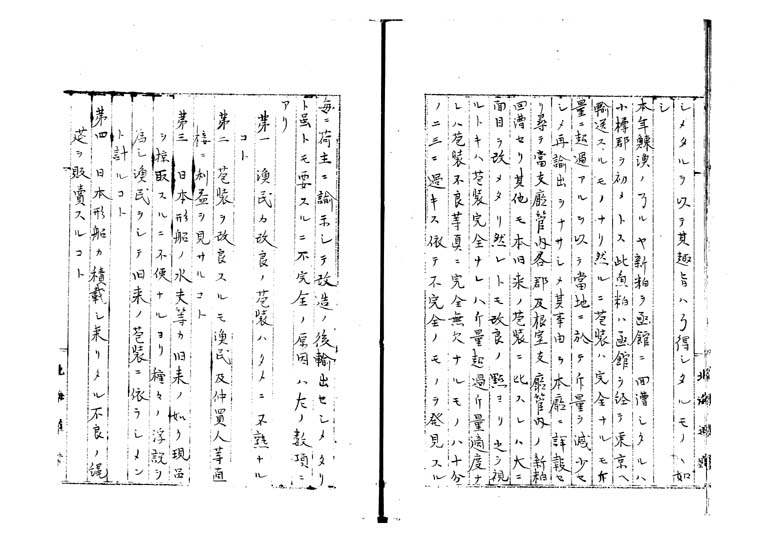 シメタルヲ以テ其趣旨ハ乃得シタルモノヽ如
シ
本年鰊漁ノ了ルヤ新粕ヲ函館ニ回漕シタルハ
小樽郡ヲ初メトス此魚粕ハ函館ヲ経テ東京ヘ
輸送スルモノナリ然ルニ苞装ハ完全ナルモ斤
量ニ超過アルヲ以テ當地ニ於テ斤量ヲ減少セ
シメ再諭出ヲナサシメ其事由ヲ本廳ニ詳報セ
リ尋テ當支廳管内各郡及根室支廳管内ノ新粕
回漕セリ其他モ本旧来ノ苞装ニ比スレハ大ニ
面目ヲ改メタリ然レトモ改良ノ點ヨリ之ヲ視
ルトキハ苞装完全ナレハ斤量超過斤量適度ナ
レハ苞装不良等真ニ完全無欠ナルモノハ十分
ノ二三ニ過キス依テ不完全ノモノヲ発見スル
毎ニ荷主ニ諭示シテ改造ノ後輸出セシメタリ
ト虽トモ要スルニ不完全ノ原因ハ左ノ数項ニ
アリ
第一 漁民カ改良ノ苞装ハタメニ不熟ナル
コト
第二 苞装ヲ改良スルモ漁民及仲買人等直
接ニ利益ヲ見サルコト
第三 日本形船ノ水夫等カ旧来ノ如ク現品
ヲ掠取スルニ不便ナルヨリ種々ノ浮説ヲ
為シ漁民ヲシテ旧来ノ苞装ニ依ラシメン
ト計ルコト
第四 日本形船カ積載シ来リタル不良ノ縄
莚ヲ販賣スルコト